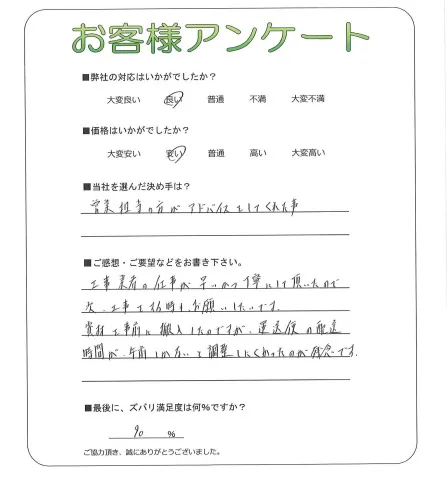 お客様アンケート
■弊社の対応はいかがでしたか？
大変良い 良い 普通 不満 大変不満
■価格はいかがでしたか？
大変安い 安い 普通 高い 大変高い
■当社を選んだ決め手は？
営業担当の方がアドバイスをしてくれた事
■ご感想・ご要望などをお書き下さい。
工事業者の仕事が早いかつ丁寧にして頂いたので
次、工事する時もお願いしたいです。
資材を事前に搬入したのですが、運送後の配送
時間が、午前しかないと調整しにくかったのが残念です。
■最後に、ズバリ満足度は何%ですか？
90 %
ご協力頂き、誠にありがとうございました。